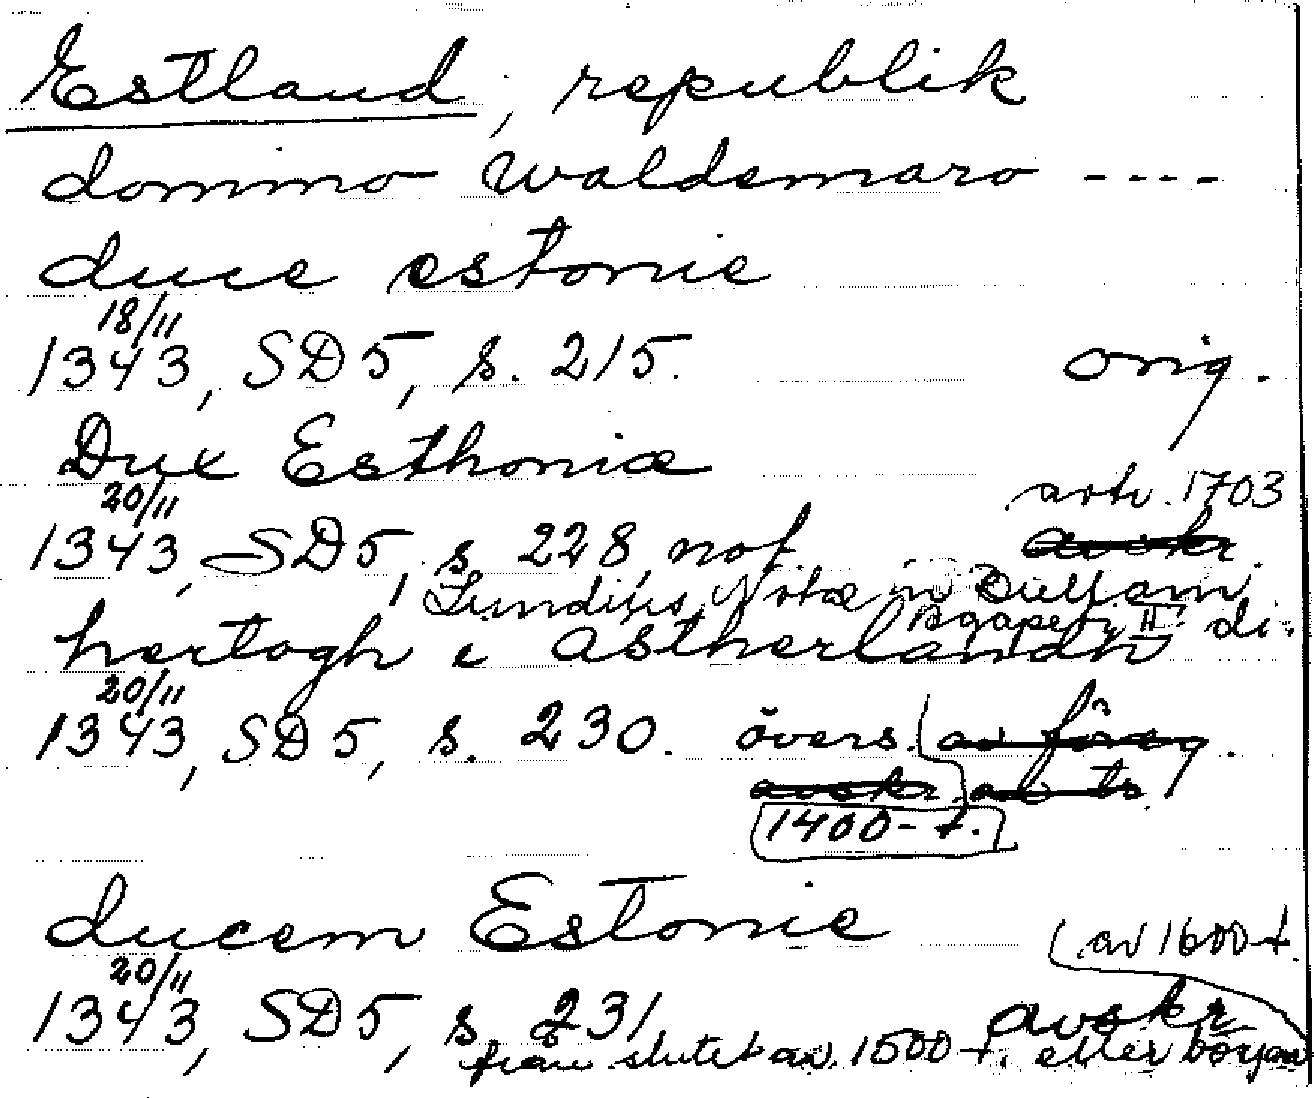 Estland, republik
domino Waldemaro ----
duce estonie
18/11
1343, SD5, s. 215. orig.
Dux Esthoniæ
20/11 avtr. 1703
1343, SD5, s. 228, not avskr
Lundijus, Notæ in Bullam
Agapeti II di.
hertogh i Astherlandh
20/11
1343, SD5, s. 230. övers. av föreg.
avskr
1400-t.
ducem Estonie
20/11 av 1600-t.
1343, SD5, s. 231 avskr
från slutet av 1500-t. eller början